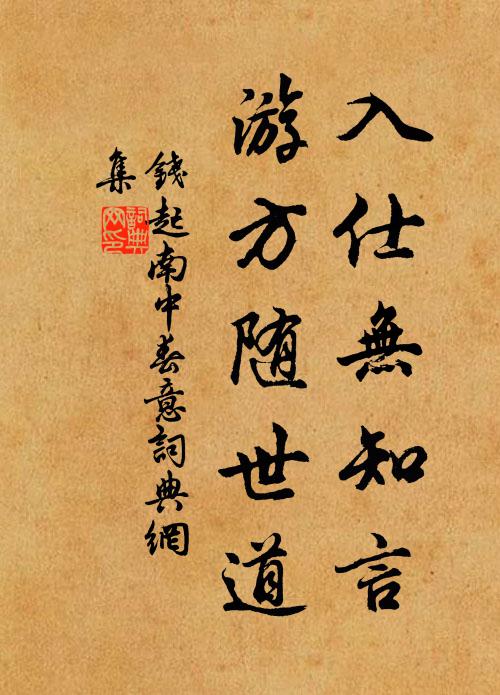 入仕無知言
游方随世道
錢起南中春意詞典網
集
詞典網印